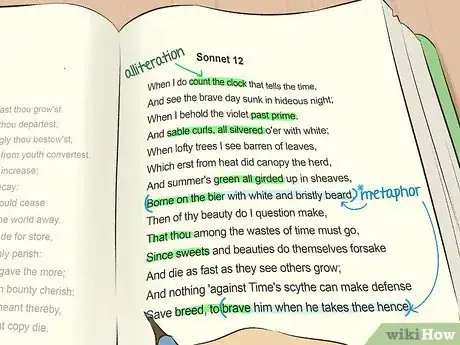 ast thou grow'st
thou departest.
gly thou bestow'st,
from youth convertest.
increase;
cay:
ould cease
he world away.
de for store,
nly perish:
gave the more;
n bounty cherish:
meant thereby,
t copy die.
alliteration
Sonnet 12
When I do count the clock that tells the time,
And see the brave day sunk in hideous night;
When I behold the violet past prime,
And sable curls, all silvered o'er with white;
When lofty trees I see barren of leaves,
Which erst from heat did canopy the herd,
And summer's green all girded up in sheaves,
(Borne on the bier with white and bristly beard)
*metaphor
Then of thy beauty do I question make,
That thou among the wastes of time must go,
Since sweets and beauties do themselves forsake
And die as fast as they see others grow;
And nothing 'against Time's scythe can make defense
Save breed, to (brave him when he takes thee hence.)
wikiHow